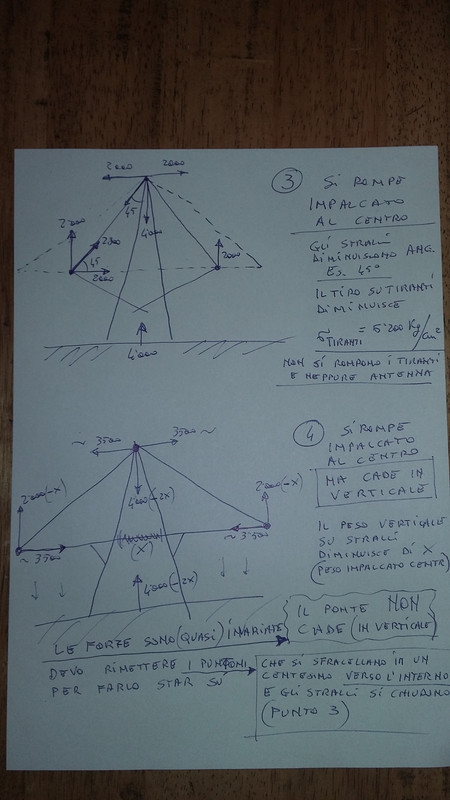 2000 2000
3 SI ROMPE
IMPALCATO
AL CENTRO
GLI STRALLI
DIMINUISCONO ANG.
ES. 45°
IL TIRO SU TIRANTI
DIMINUISCE
TIRANTI = 5200 Kg/cm²
NON SI ROMPONO I TIRANTI
E NEPPURE ANTENNA
45
4000
2000
2800
45
2000
2000
4000
4 SI ROMPE
IMPALCATO
AL CENTRO
MA CADE IN
VERTICALE
IL PESO VERTICALE
SU STRALLI
DIMINUISCE DI X
(PESO IMPALCATO CENTR)
~ 3500 3500 ~
2000(-X)
4000(-2X)
2000(-X)
(X)
~ 3500
~ 3500
4000(-2X)
LE FORZE SONO (QUASI) INVARIATE
IL PONTE NON
CADE (IN VERTICALE)
DEVO RIMETTERE I PUNTONI
PER FARLO STAR SU
CHE SI SFRACELLANO IN UN
CENTESIMO VERSO L'INTERNO
E GLI STRALLI SI CHIUDONO
(PUNTO 3)